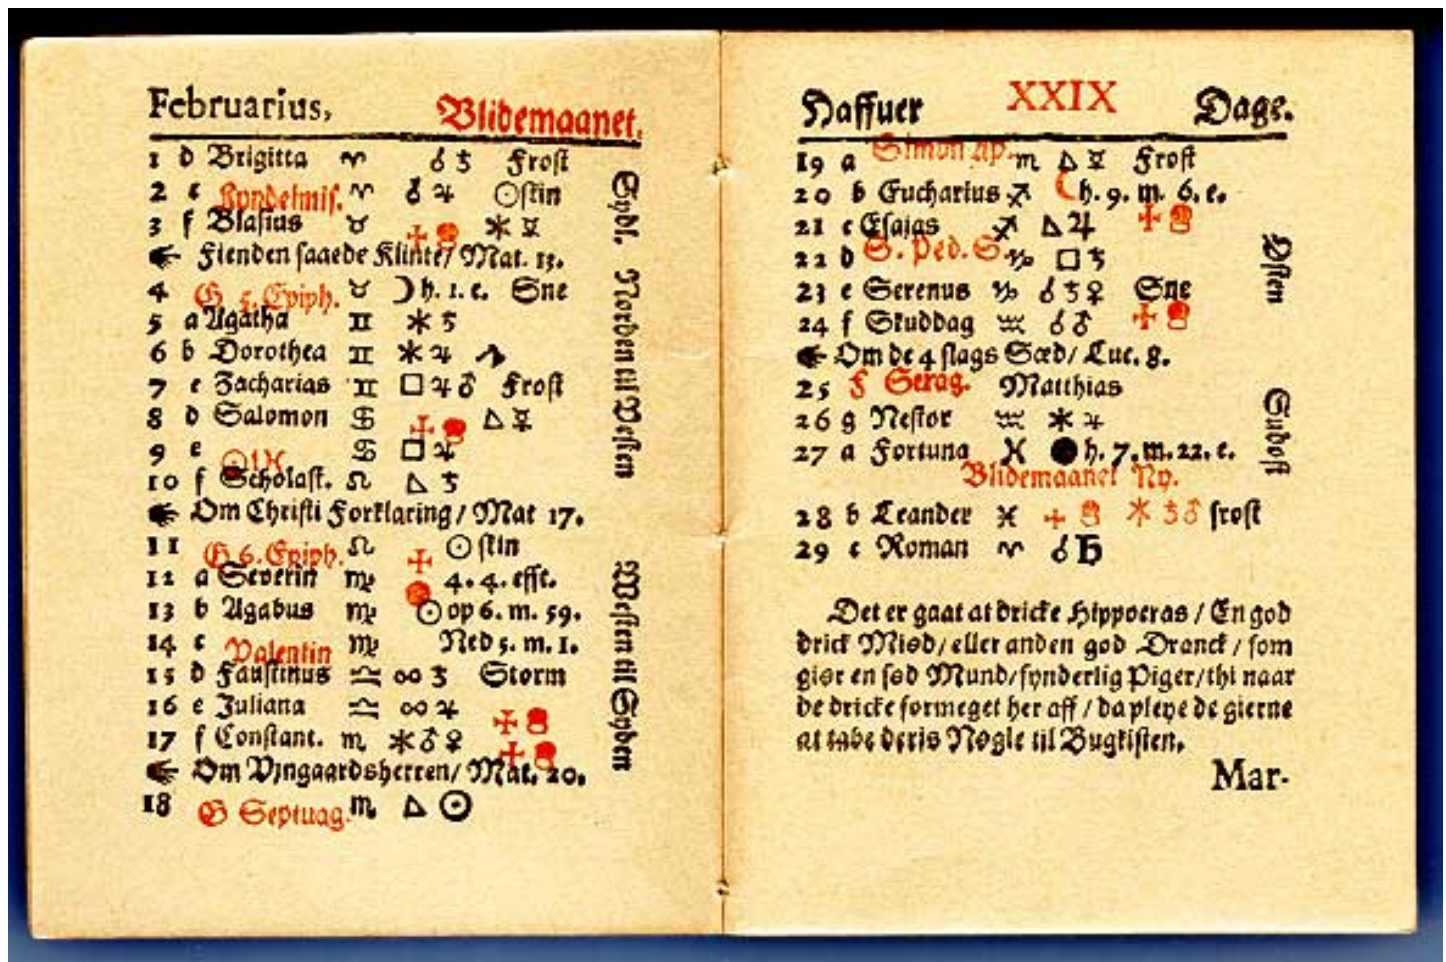 Februarius, Blidemaanet.
1 d Brigitta ♈ ☌ ♄ Frost
2 e Kyndelmis. ♈ ☌ ♃ ☉ skin
3 f Blasius ♉ ⚹ ☿
☛ Fienden saaede Klinte/ Mat. 13.
4 G 5. Epiph. ♉ ☽ h. 1. e. Sne
5 a Agatha ♊ ⚹ ♄
6 b Dorothea ♊ ⚹ ♃
7 c Zacharias ♊ □ ♃ ♂ Frost
8 d Salomon ♋ △ ☿
9 e ☉ i ♓ ♋ □ ♃
10 f Scholast. ♌ △ ♄
☛ Om Christi Forklaring/ Mat 17.
11 G 6. Epiph. ♌ ☉ skin
12 a Severin ♍ 4. 4. efft.
13 b Agabus ♍ ☉ op 6. m. 59.
14 c Valentin ♍ Ned 5. m. 1.
15 d Faustinus ♎ ☍ ♄ Storm
16 e Juliana ♎ ☍ ♃
17 f Constant. ♏ ⚹ ♂ ♀
☛ Om Vjngaardsherren/ Mat. 20.
18 G Septuag. ♏ △ ☉
Sydl. Norden til Vesten
Westen til Syden
Haffuer XXIX Dage.
19 a Simon Ap. ♏ △ ☿ Frost
20 b Eucharius ♐ ☾ h. 9. m. 6. e.
21 c Esajas ♐ △ ♃
22 d S. Ped. S. ♑ □ ♄
23 e Serenus ♑ ☌ ♄ ♀ Sne
24 f Skuddag ♒ ☌ ♂
☛ Om de 4 slags Sæd/ Luc. 8.
25 F Serag. Matthias
26 g Nestor ♒ ⚹ ♃
27 a Fortuna ♓ ● h. 7. m. 22. e.
Blidemaanet Ny.
28 b Leander ♓ ⚹ ♄ ♂ frost
29 c Roman ♈ ☌ ♄
Østen
Sudost
Det er gaat at dricke Hippocras/ En god
drick Miød/ eller anden god Dranck/ som
giør en sød Mund/ synderlig Piger/ thi naar
de dricke formeget her aff/ da pleye de gierne
at tabe deris Nøgle til Bugkisten.
Mar-